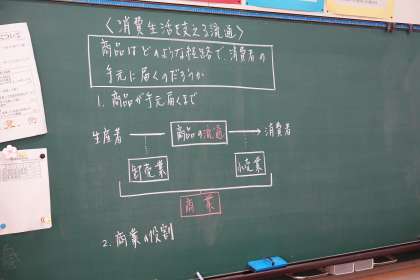 〈消費生活を支える流通〉
商品はどのような経路で、消費者の
手元に届くのだろうか
1. 商品が手元届くまで
生産者 商品の流通 消費者
卸売業 小売業
商業
2. 商業の役割